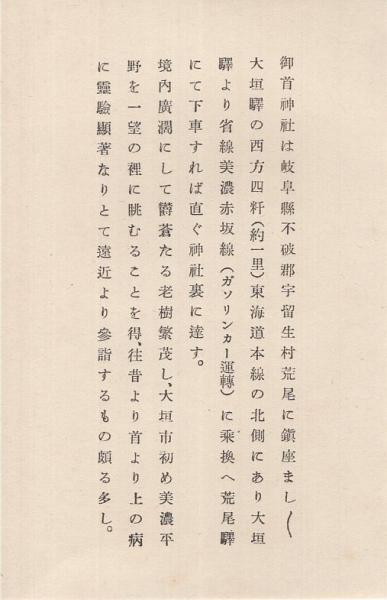 御首神社は岐阜縣不破郡宇留生村荒尾に鎭座まし〱
大垣驛の西方四粁(約一里)東海道本線の北側にあり大垣
驛より省線美濃赤坂線(ガソリンカー運轉)に乘換へ荒尾驛
にて下車すれば直ぐ神社裏に達す。
境内廣濶にして欝蒼たる老樹繁茂し、大垣市初め美濃平
野を一望の裡に眺むることを得、往昔より首より上の病
に靈驗顯著なりとて遠近より參詣するもの頗る多し。